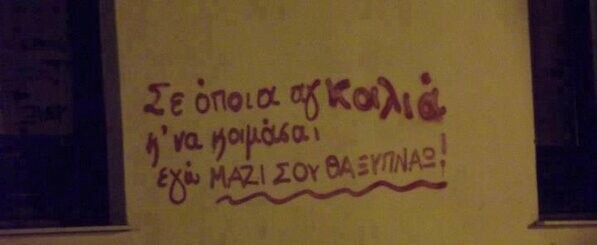 Σε όποια αγκαλιά
κ' να κοιμάσαι
εγώ ΜΑΖΙ ΣΟΥ ΘΑ ΞΥΠΝΑΩ!